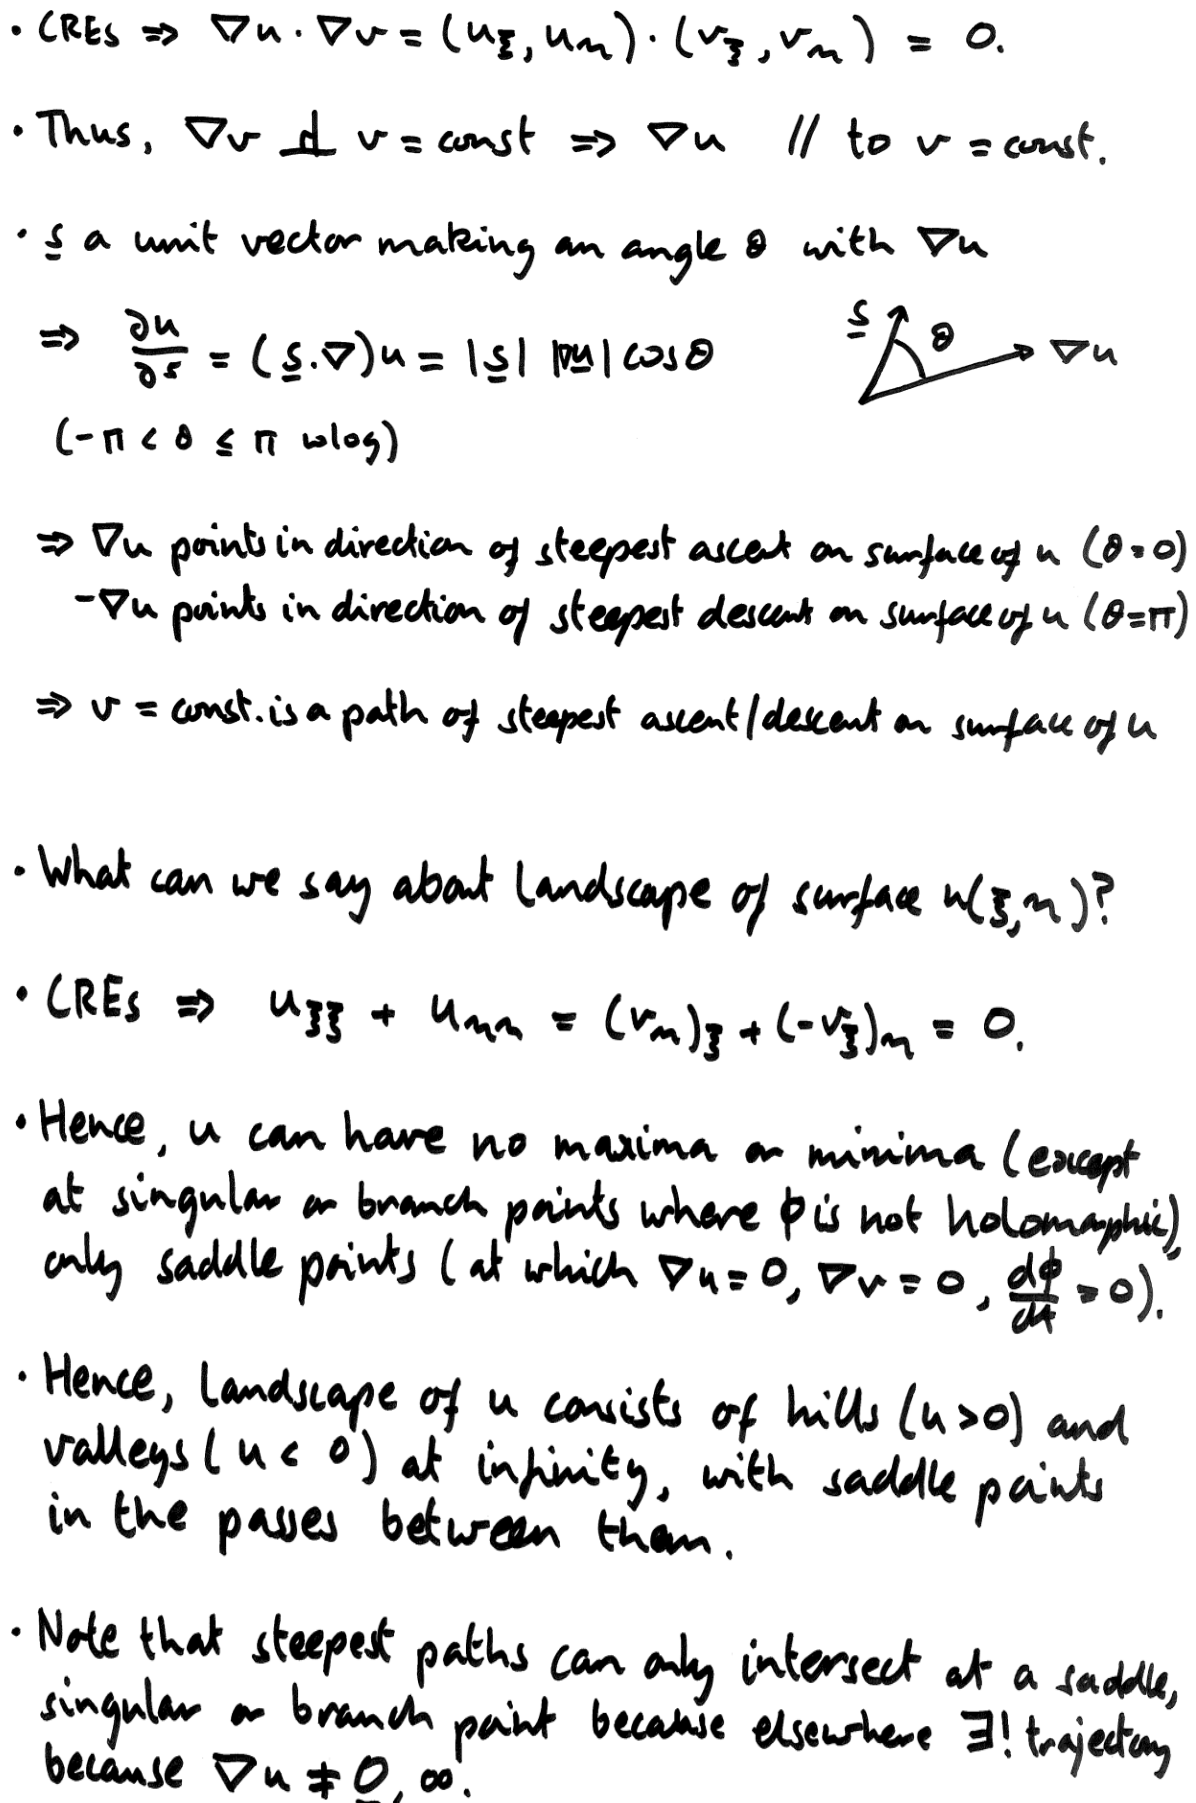 • CREs ⇒ ∇u · ∇v = (u_ξ, u_η) · (v_ξ, v_η) = 0.
• Thus, ∇v ⊥ v = const ⇒ ∇u // to v = const.
• s a unit vector making an angle θ with ∇u
⇒ ∂u/∂s = (s.∇)u = |s| |∇u| cosθ
s θ ∇u
(-π < θ ≤ π wlog)
⇒ ∇u points in direction of steepest ascent on surface of u (θ=0)
-∇u points in direction of steepest descent on surface of u (θ=π)
⇒ v = const. is a path of steepest ascent/descent on surface of u
• What can we say about landscape of surface u(ξ,η)?
• CREs ⇒ u_ξξ + u_ηη = (v_η)_ξ + (-v_ξ)_η = 0.
• Hence, u can have no maxima or minima (except
at singular or branch points where ϕ is not holomorphic),
only saddle points (at which ∇u=0, ∇v=0, dϕ/dt =0).
• Hence, landscape of u consists of hills (u>0) and
valleys (u<0) at infinity, with saddle points
in the passes between them.
• Note that steepest paths can only intersect at a saddle,
singular or branch point because elsewhere ∃! trajectory
because ∇u ≠ 0, ∞.